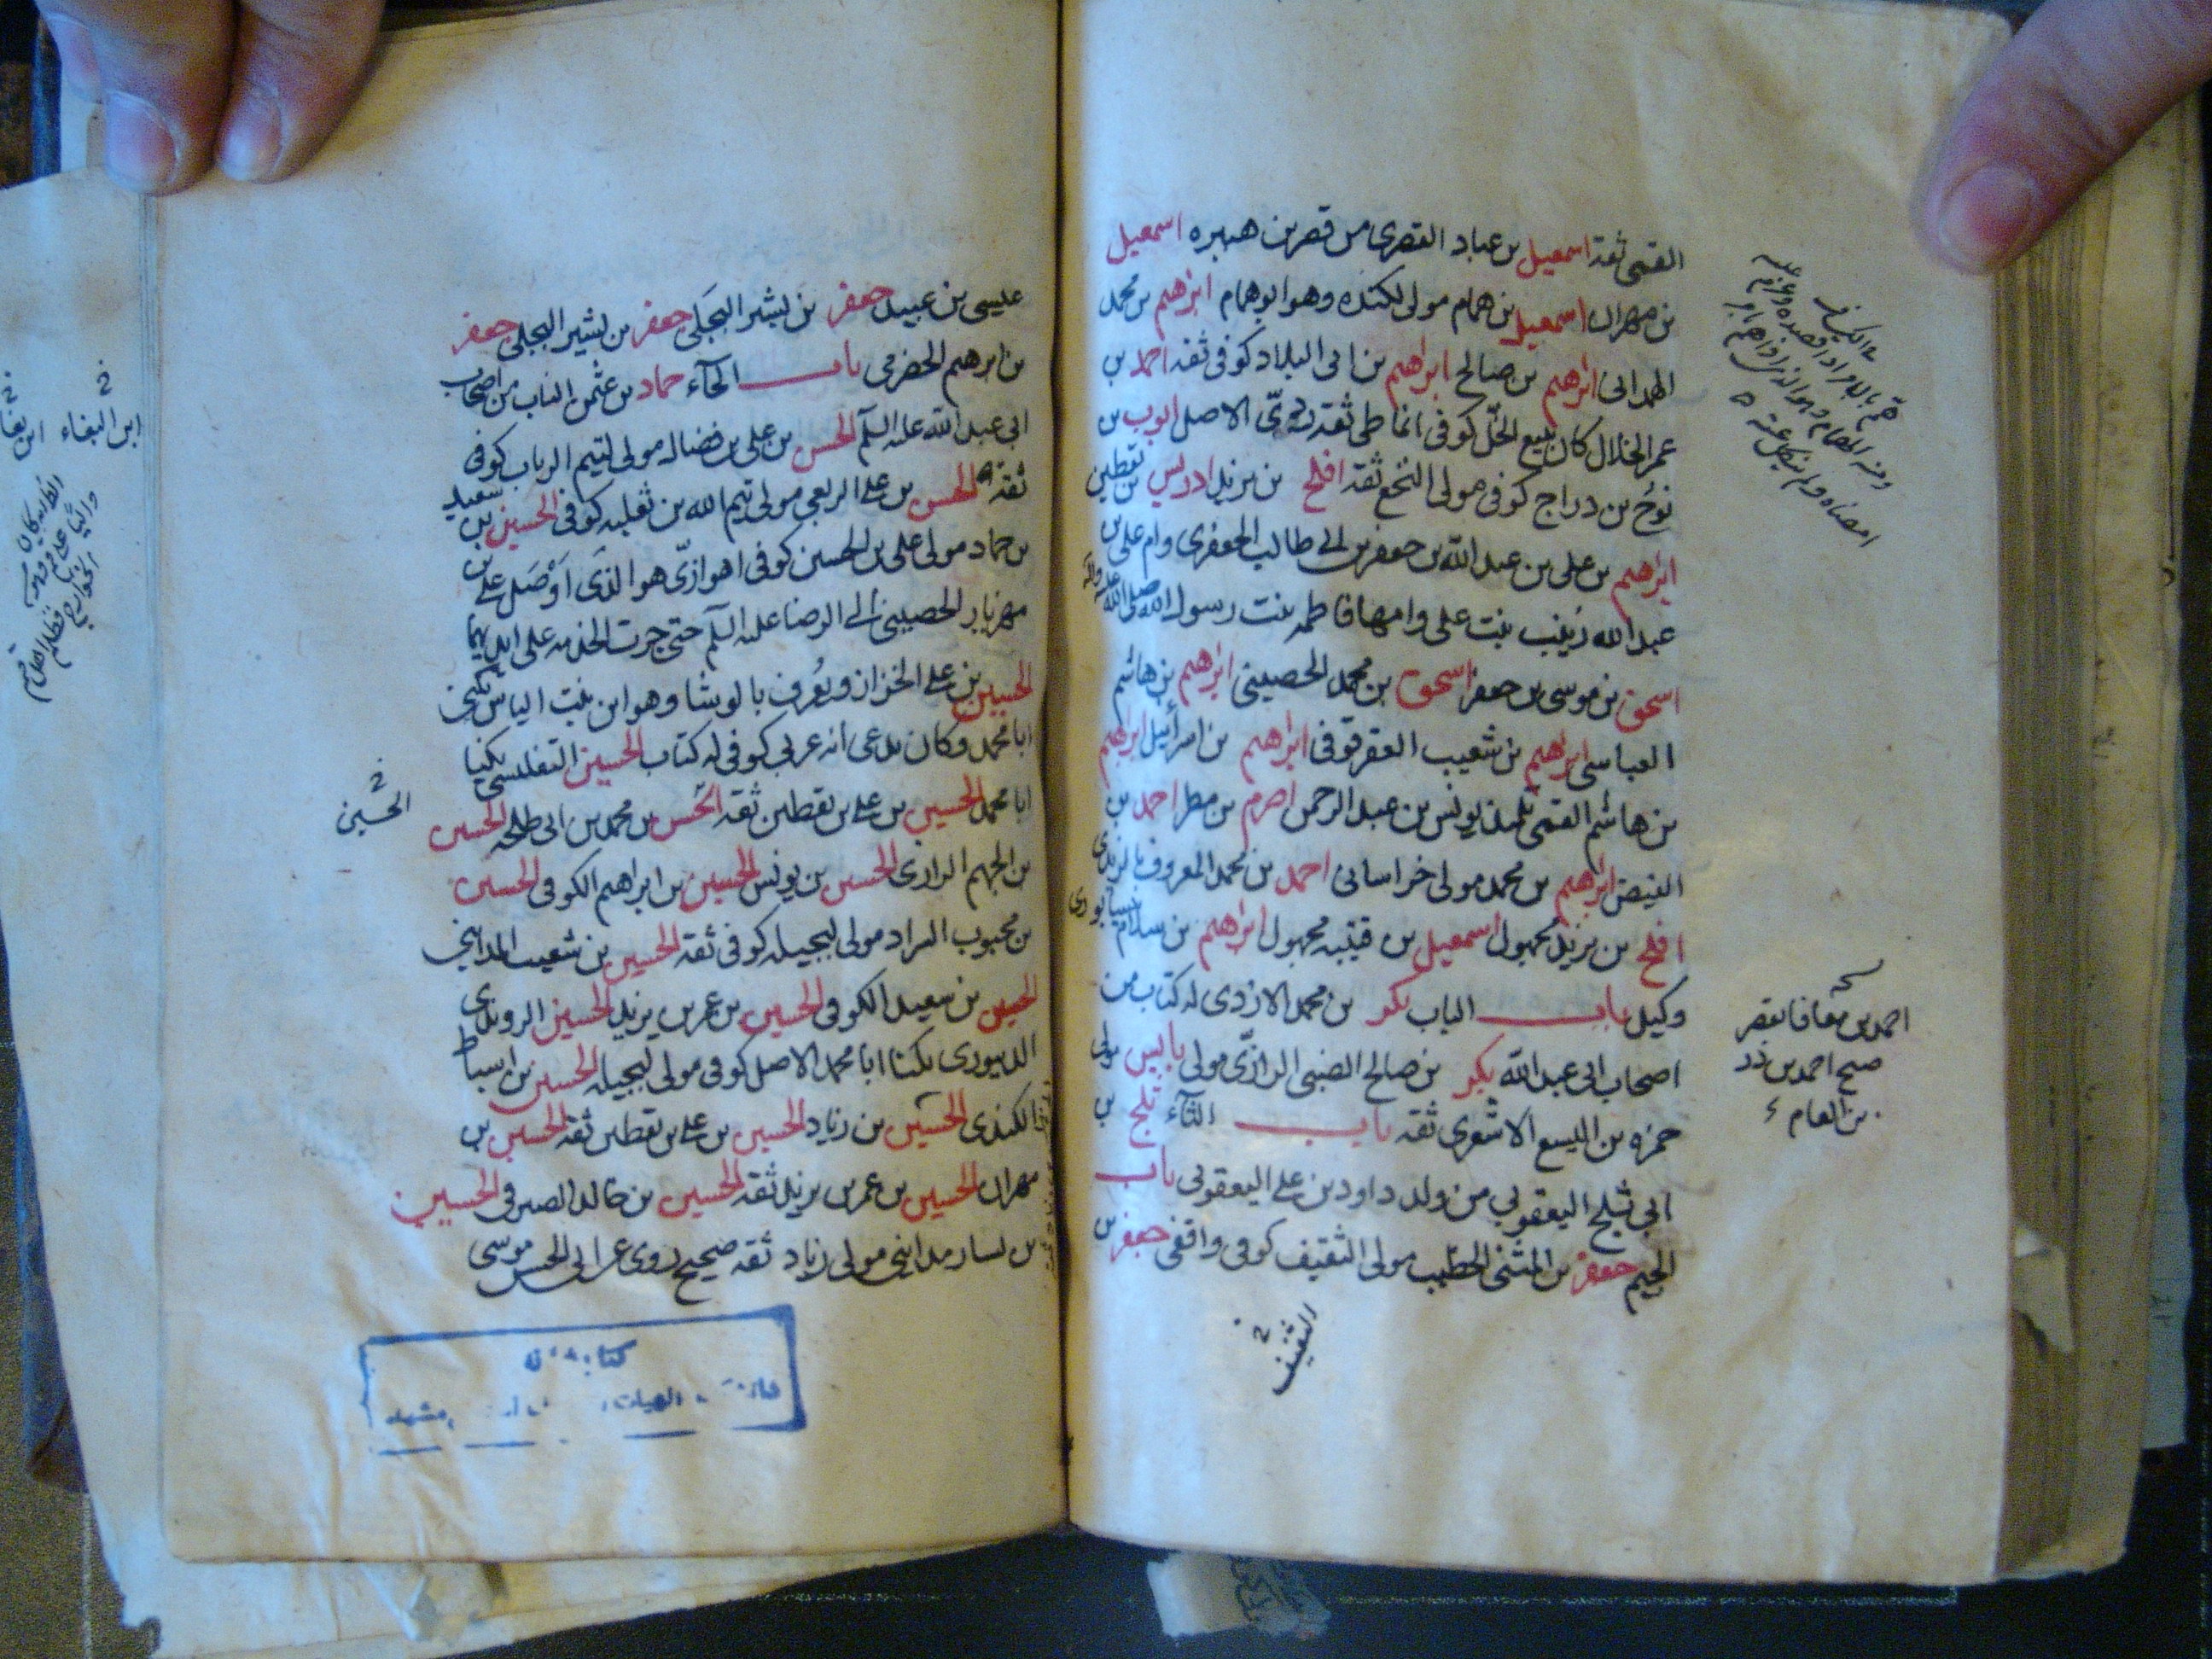 القمی ثقة اسمعيل بن عباد القصری من قصر بن هبيره اسمعيل
بن مهران اسمعيل بن همام مولی لكنده وهو ابو همام ابرهيم بن محمد
الهمدانی ابرهيم بن صالح ابرهيم بن ابی البلاد كوفی ثقه احمد بن
عمر الخلال كان يبيع الخل كوفی انماطی ثقه ردی الاصل ايوب بن
نوح بن دراج كوفی مولی النخع ثقه افلح بن يزيد ادريس بن يقطين
ابرهيم بن علی بن عبد الله بن جعفر بن ابی طالب الجعفری وام علی بن
عبد الله زينب بنت علی وامها فاطمه بنت رسول الله صلی الله عليه وآله
اسحق بن موسی بن جعفر اسحق بن محمد الحصينی ابرهيم بن هاشم
العباسی ابرهيم بن شعيب العقرقوفی ابراهيم بن اسرائيل ابراهيم
بن هاشم القمی تلميذ يونس بن عبد الرحمن اصرم بن مطر احمد بن
الفيض ابرهيم بن محمد مولی خراسانی احمد بن محمد المعروف
افلح بن يزيد مجهول اسمعيل بن قتيبه مجهول ابراهيم بن سلام نيسابوری
وكيل باب الباب بكر بن محمد الازدی له كتاب من
اصحاب ابی عبد الله بكر بن صالح الضبی الرازی مولی بائيس مولی
حمزه بن اليسع الاشعری ثقه باب الثآء ثلج بن
ابی ثلج اليعقوبی من ولد داود بن علی اليعقوبی باب
الجيم جعفر بن المثنی الخطيب مولی الثقيف كوفی واقفی جعفر بن
الثقيف
صح احمد بن
عيسی بن عبيد جعفر بن بشير البجلی جعفر بن بشير البجلی جعفر
بن ابرهيم الحضرمی باب الحآء حماد بن عثمن الناب من اصحاب
ابی عبد الله عليه السلم الحسن بن علی بن فضال مولی لتيم الرباب كوفی
ثقه الحسن بن علی الربعی مولی تيم الله بن ثعلبه كوفی الحسين بن سعيد
بن حماد مولی علی بن الحسين كوفی اهوازی هو الذی اوصل علی بن
مهزيار الحصينی الی الرضا عليه السلم حتی جرت الخدمه علی ايديهما
الحسين بن علی الخزاز ويعرف بالوشا وهو ابن بنت الياس يكنی
ابا محمد وكان يدعی انه عربی كوفی له كتاب الحسين التفليسی يكنيا
ابا محمد الحسين بن علی بن يقطين ثقه الحسن بن محمد بن ابی طلحه الحسين
بن الجهم الرازی الحسين بن يونس الحسين بن ابراهيم الكوفی الحسين
بن محبوب السراد مولی لبجيله كوفی ثقة الحسين بن شعيب المداينی
الحسين بن سعيد الكوفی الحسين بن عمر بن يزيد الحسين الروندی
الدينوری يكنا ابا محمد الاصل كوفی مولی لبجيله الحسين بن اسباط
الكندی الحسين بن زياد الحسين بن علی بن يقطين ثقه الحسين بن
مهران الحسين بن عمر بن يزيد ثقه الحسين بن خالد الصيرفی الحسين
بن بسار مداينی مولی زياد ثقه صحيح روی عن ابی الحسن موسی
الحسين
ابن البغاء
كتابخانه
الهيات
مشهد